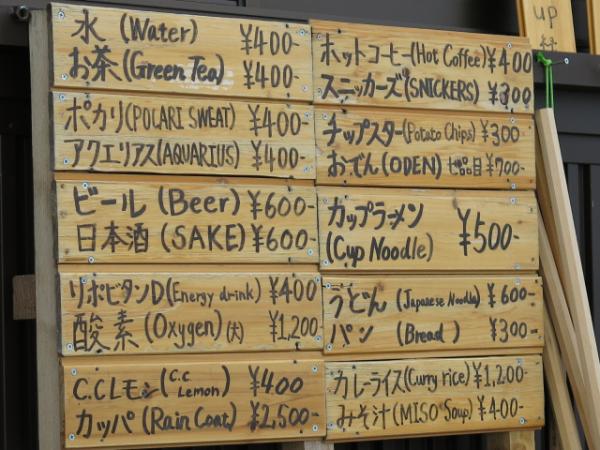 水 (Water) ¥400-
お茶 (Green Tea) ¥400-
ポカリ (POLARI SWEAT) ¥400-
アクエリアス (AQUARIUS) ¥400-
ビール (Beer) ¥600-
日本酒 (SAKE) ¥600-
リポビタンD (Energy drink) ¥400
酸素 (Oxygen) (大) ¥1,200-
C.C.レモン (C.C Lemon) ¥400
カッパ (Rain Coat) ¥2,500-
ホットコーヒー (Hot Coffee) ¥400
スニッカーズ (SNICKERS) ¥300
チップスター (Potato Chips) ¥300
おでん (ODEN) 七品目 ¥700-
カップラーメン
(Cup Noodle) ¥500-
うどん (Japanese Noodle) ¥600-
パン (Bread) ¥300-
カレーライス (Curry rice) ¥1,200
みそ汁 (MISO Soup) ¥400-
up